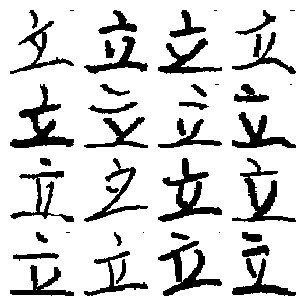 立立立立
立立立立
立立立立
立立立立